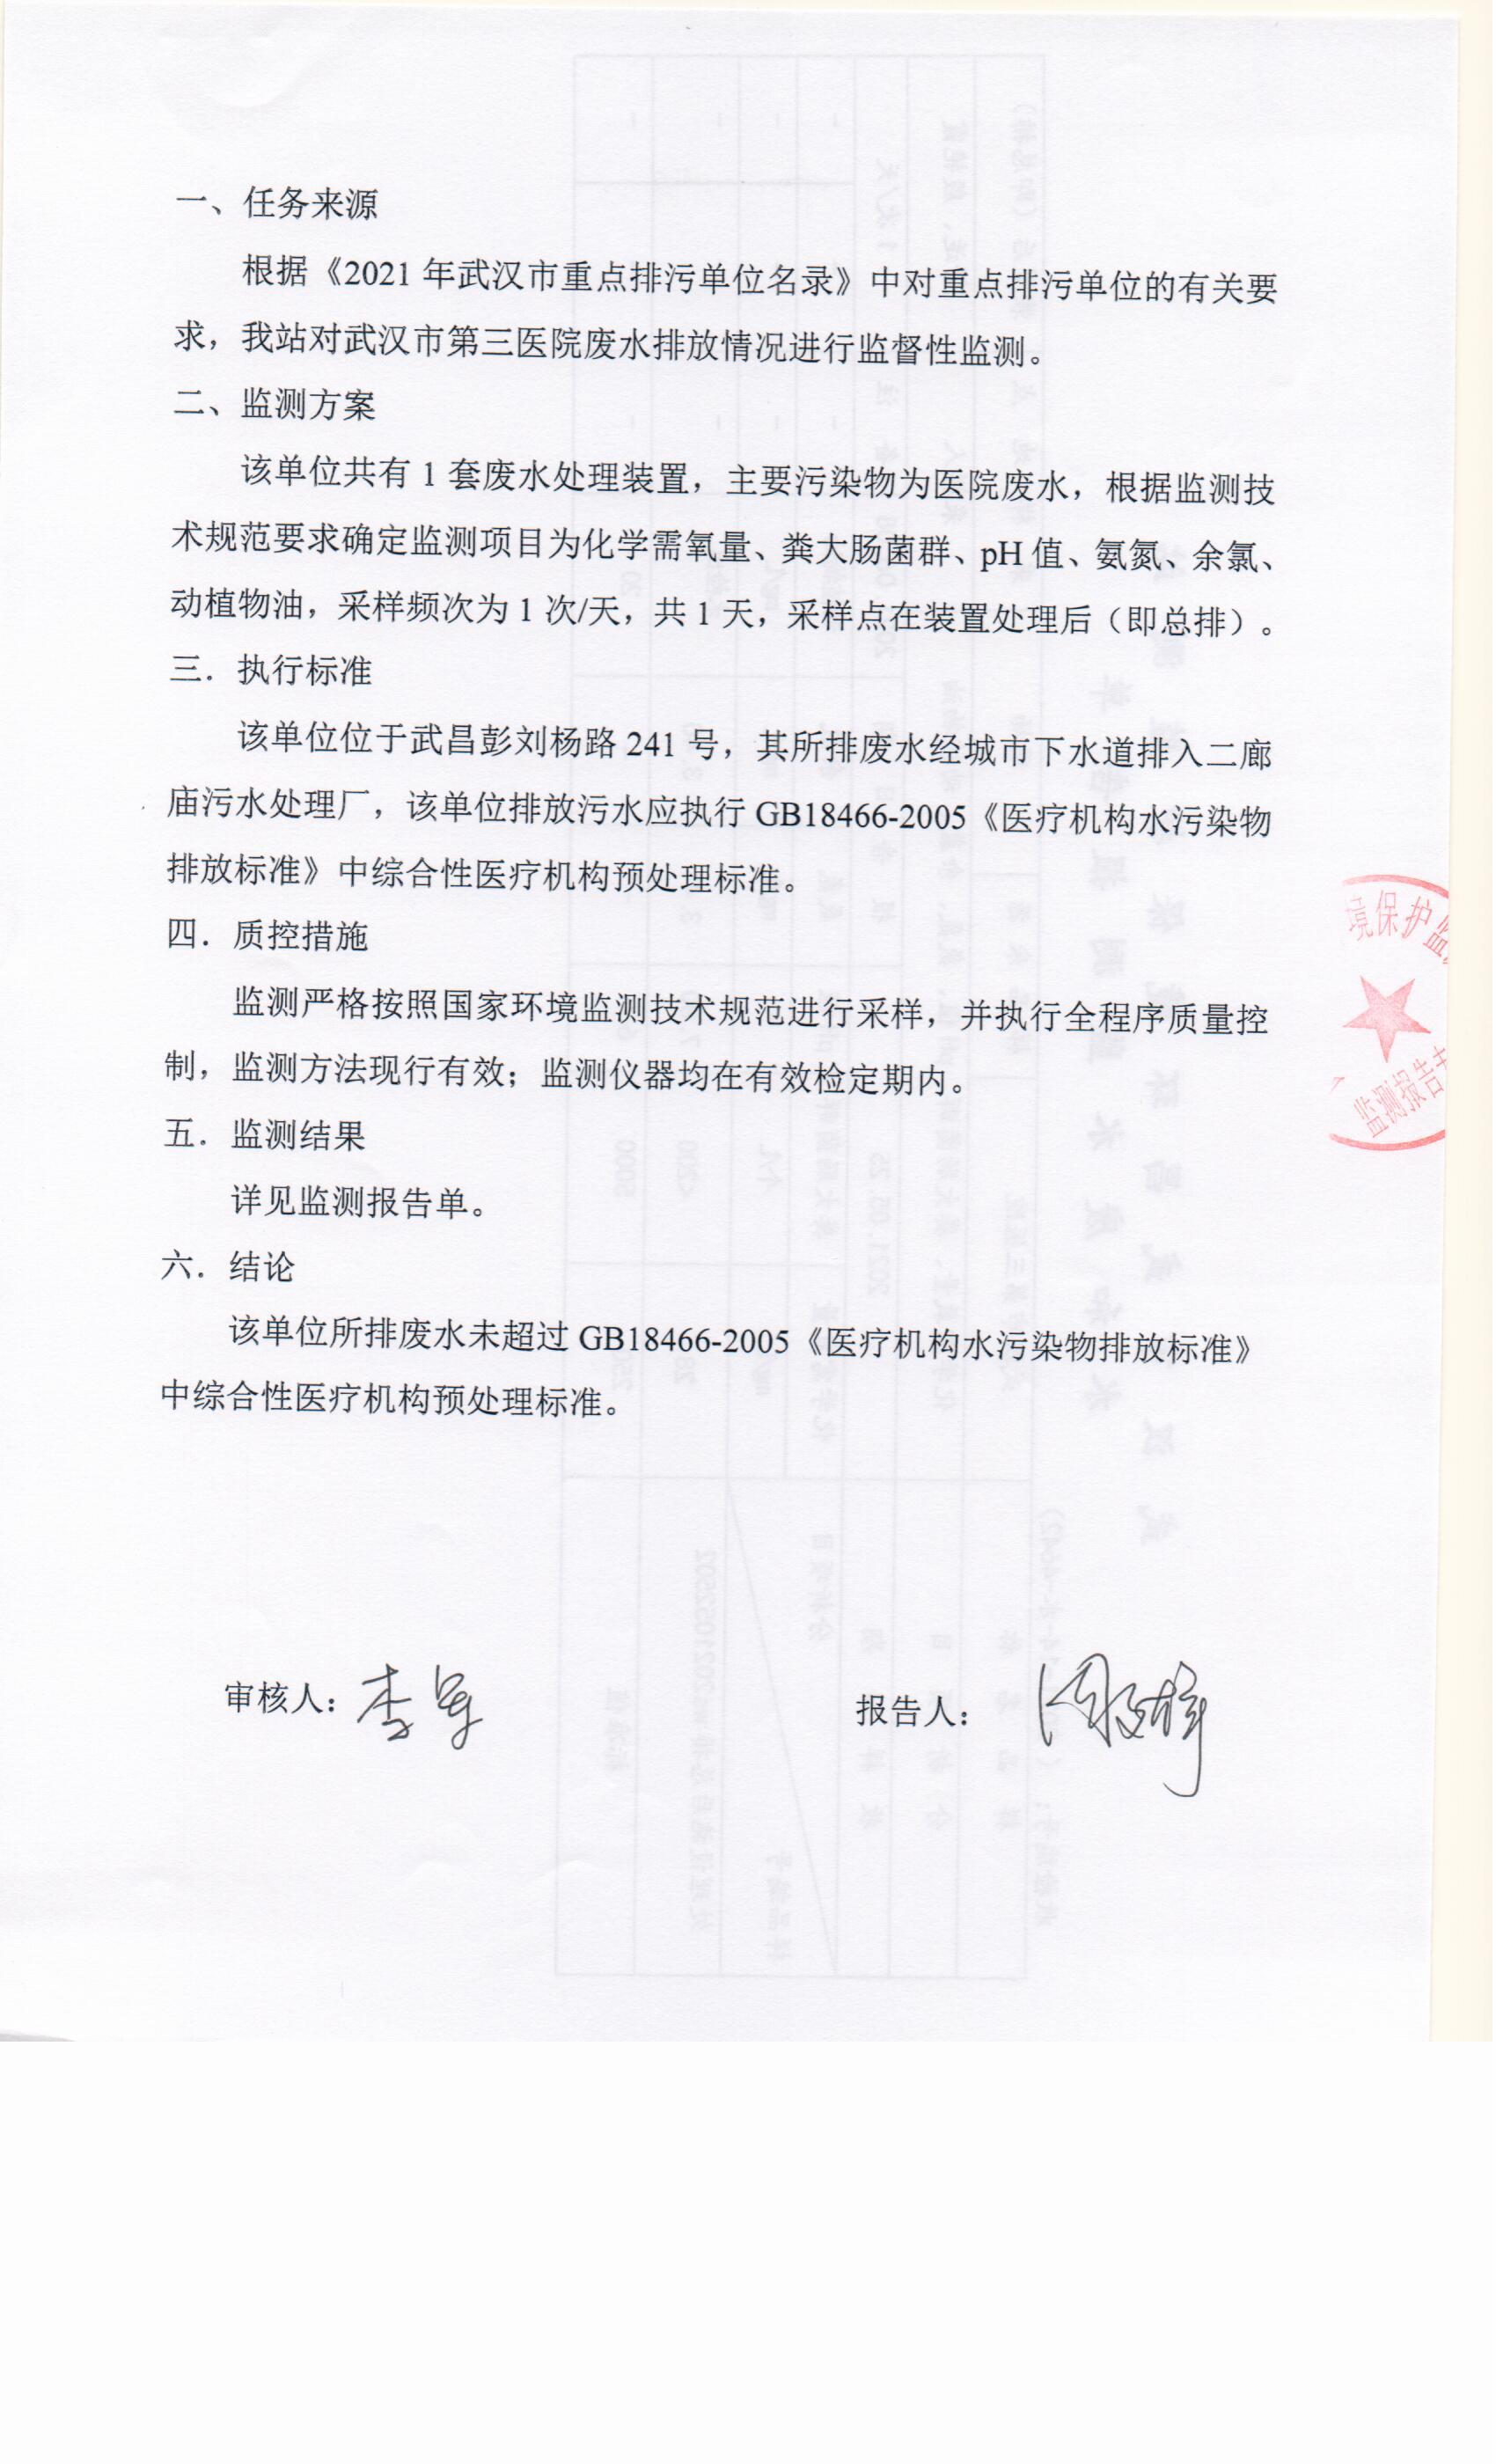 一、任务来源
根据《2021年武汉市重点排污单位名录》中对重点排污单位的有关要
求，我站对武汉市第三医院废水排放情况进行监督性监测。
二、监测方案
该单位共有1套废水处理装置，主要污染物为医院废水，根据监测技
术规范要求确定监测项目为化学需氧量、粪大肠菌群、pH值、氨氮、余氯、
动植物油，采样频次为1次/天，共1天，采样点在装置处理后（即总排）。
三．执行标准
该单位位于武昌彭刘杨路241号，其所排废水经城市下水道排入二廊
庙污水处理厂，该单位排放污水应执行GB18466-2005《医疗机构水污染物
排放标准》中综合性医疗机构预处理标准。
四．质控措施
监测严格按照国家环境监测技术规范进行采样，并执行全程序质量控
制，监测方法现行有效；监测仪器均在有效检定期内。
五．监测结果
详见监测报告单。
六．结论
该单位所排废水未超过GB18466-2005《医疗机构水污染物排放标准》
中综合性医疗机构预处理标准。
境保护监
监测报告
审核人：李军
报告人：